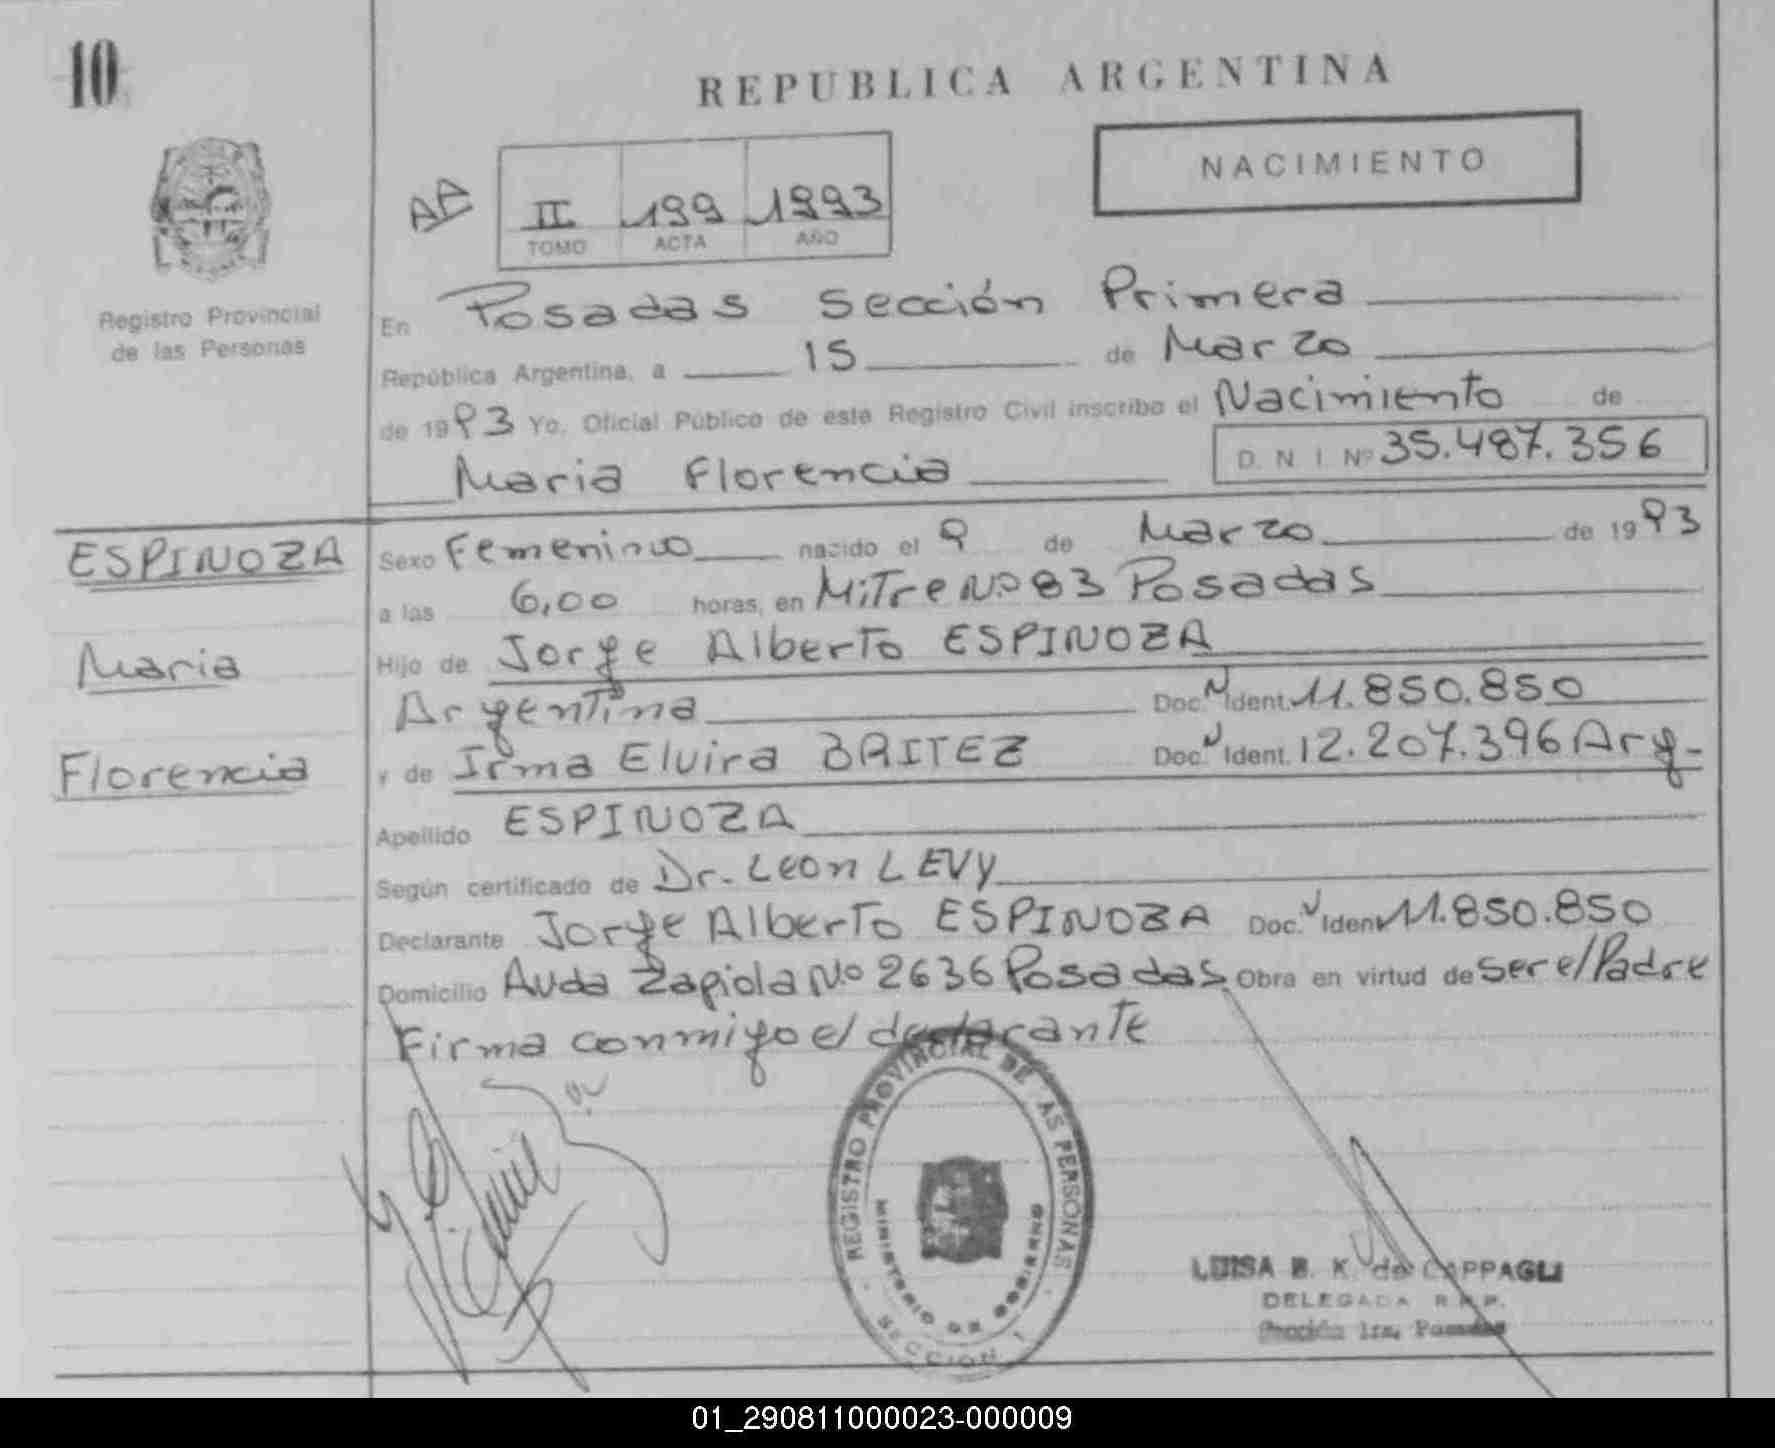 10
REPUBLICA ARGENTINA
NACIMIENTO
AA
II 199 1993
TOMO ACTA AÑO
Registro Provincial
de las Personas
En Posadas Sección Primera
República Argentina, a 15 de Marzo
de 1993 Yo, Oficial Público de este Registro Civil inscribo el Nacimiento de
Maria Florencia D. N I Nº 35.487.356
ESPINOZA
Maria
Florencia
Sexo Femenino nacido el 9 de Marzo de 1993
a las 6,00 horas, en Mitre Nº 83 Posadas
Hijo de Jorge Alberto ESPINOZA
Argentina Doc. N Ident. 11.850.850
y de Irma Elvira BRITEZ Doc. N Ident. 12.207.396 Arg-
Apellido ESPINOZA
Según certificado de Dr. Leon LEVY
Declarante Jorge Alberto ESPINOZA Doc. N Ident. 11.850.850
Domicilio Avda Zapiola Nº 2636 Posadas. Obra en virtud de ser el Padre
Firma conmigo el declarante
REGISTRO PROVINCIAL DE LAS PERSONAS
MINISTERIO DE GOBIERNO
SECCION
LUISA B. K. de CAPPAGLI
DELEGADA R.P.P.
Sección 1ra. Posadas
01_290811000023-000009